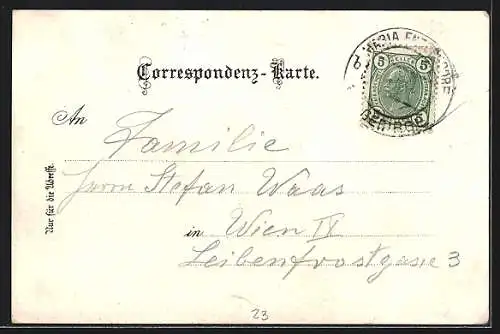 Correspondenz-Karte.
5 5
An Familie
Herrn Stefan Waas
in Wien IV
Leibenfrostgasse 3
Nur für die Adresse.
23